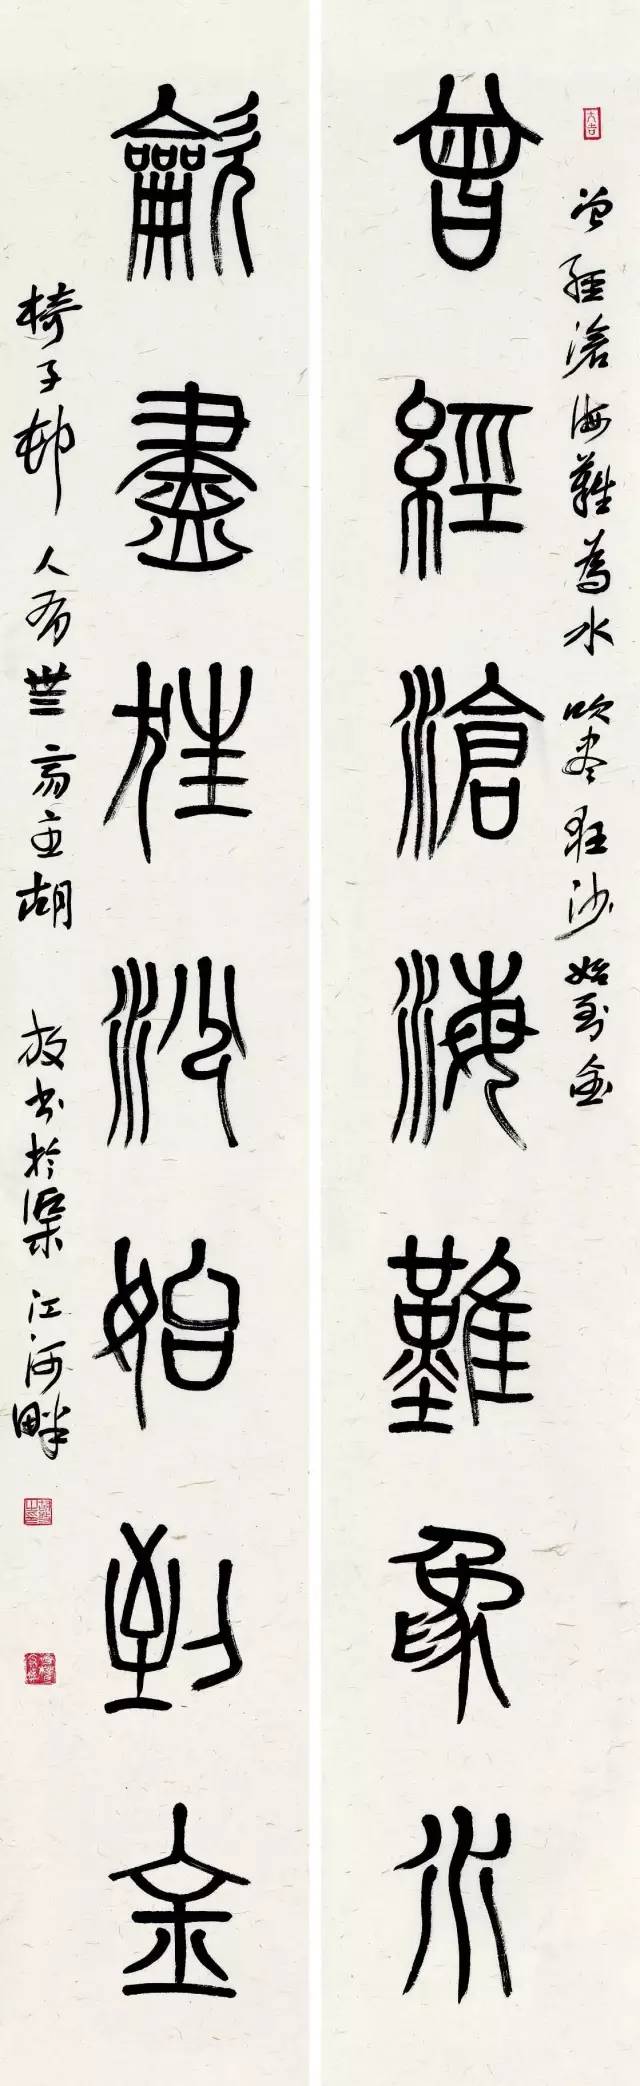 曾經滄海難為水
龡盡狂沙始到金
曾經滄海難為水 吹盡狂沙始到金
椅子邨人有無齋主胡 放書於渠江河畔
大吉